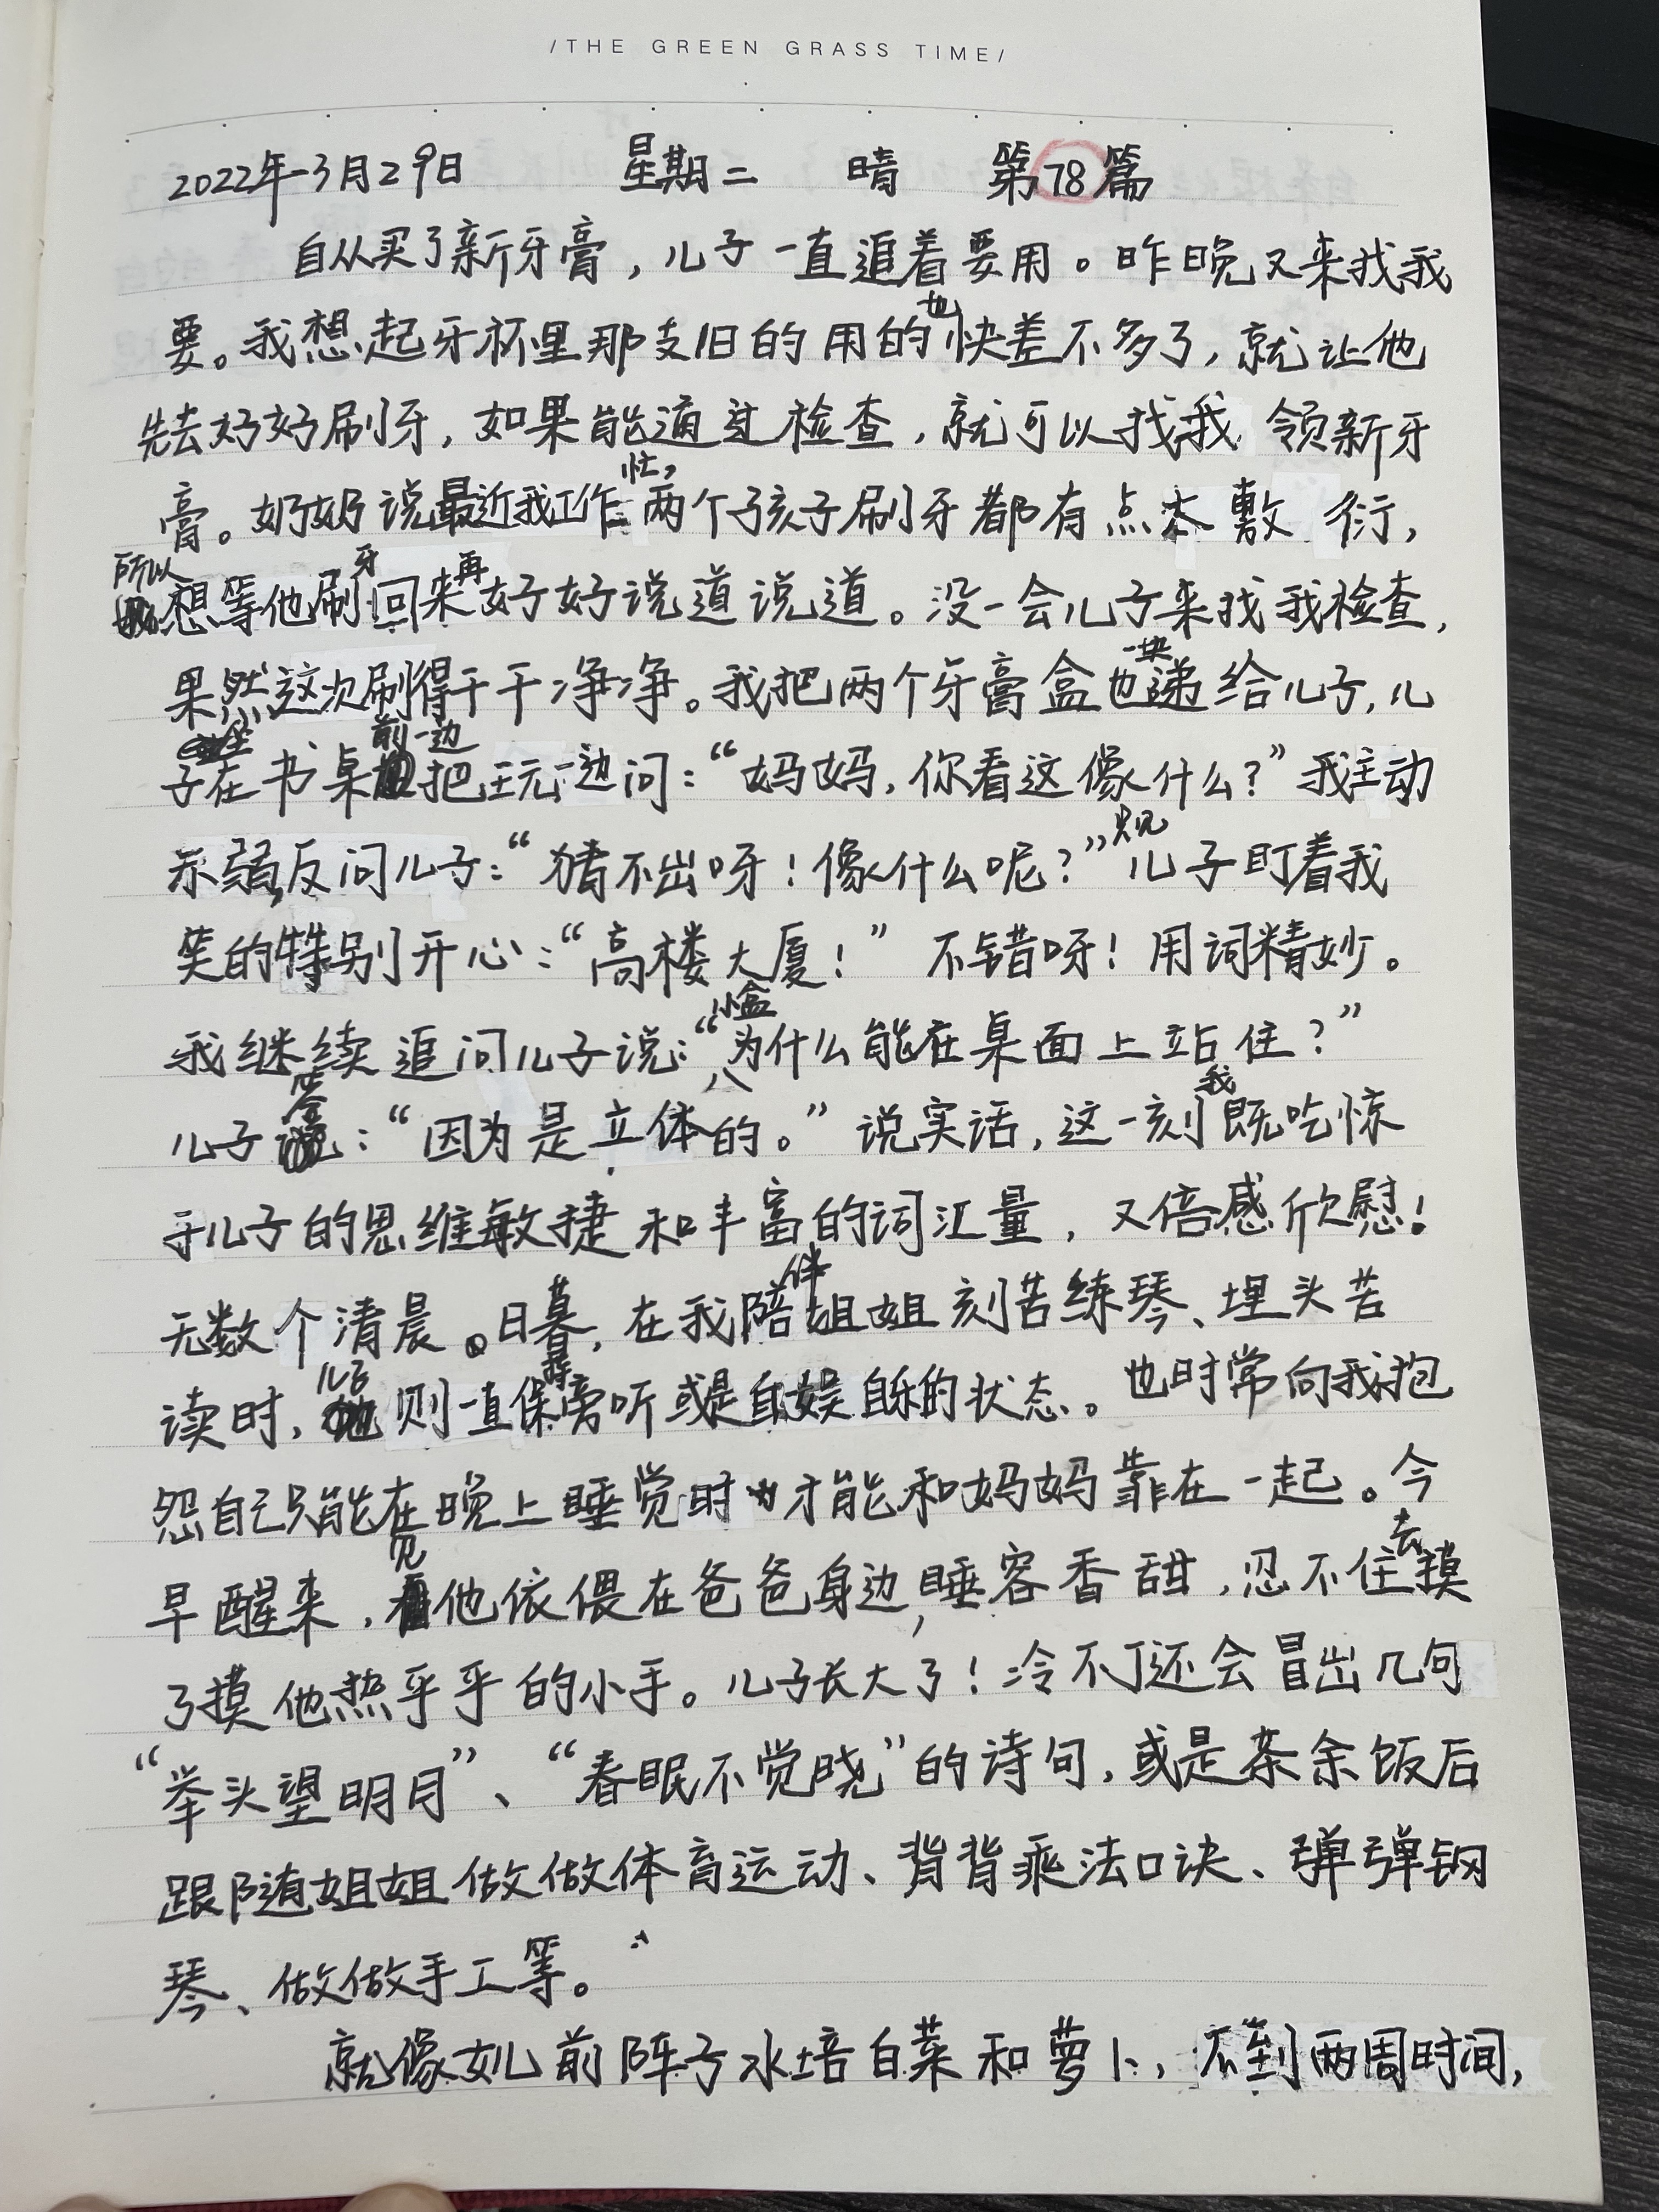 /THE GREEN GRASS TIME/
2022年3月29日 星期二 晴 第78篇
自从买了新牙膏，儿子一直追着要用。昨晚又来找我
要。我想起牙杯里那支旧的用的也快差不多了，就让他
先去好好刷牙，如果能通过检查，就可以找我领新牙
膏。奶奶说最近我工作忙，两个孩子刷牙都有点太敷衍，
所以想等他刷牙回来再好好说道说道。没一会儿子来找我检查，
果然这次刷得干干净净。我把两个牙膏盒也一块递给儿子，儿
子坐在书桌前一边把玩一边问：“妈妈，你看这像什么？”我主动
示弱，反问儿子：“猜不出呀！像什么呢？”只见儿子盯着我
笑的特别开心：“高楼大厦！”不错呀！用词精妙。
我继续追问儿子说：“小盒为什么能在桌面上站住？”
儿子答：“因为是立体的。”说实话，这一刻我既吃惊
于儿子的思维敏捷和丰富的词汇量，又倍感欣慰！
无数个清晨。日暮，在我陪伴姐姐刻苦练琴、埋头苦
读时，儿子则一直保持旁听或是自娱自乐的状态。也时常向我抱
怨自己只能在晚上睡觉时才能和妈妈靠在一起。今
早醒来，见他依偎在爸爸身边，睡容香甜，忍不住去摸
了摸他热乎乎的小手。儿子长大了！冷不丁还会冒出几句
“举头望明月”、“春眠不觉晓”的诗句，或是茶余饭后
跟随姐姐做做体育运动、背背乘法口诀、弹弹钢
琴、做做手工等。
就像女儿前阵子水培白菜和萝卜，不到两周时间，